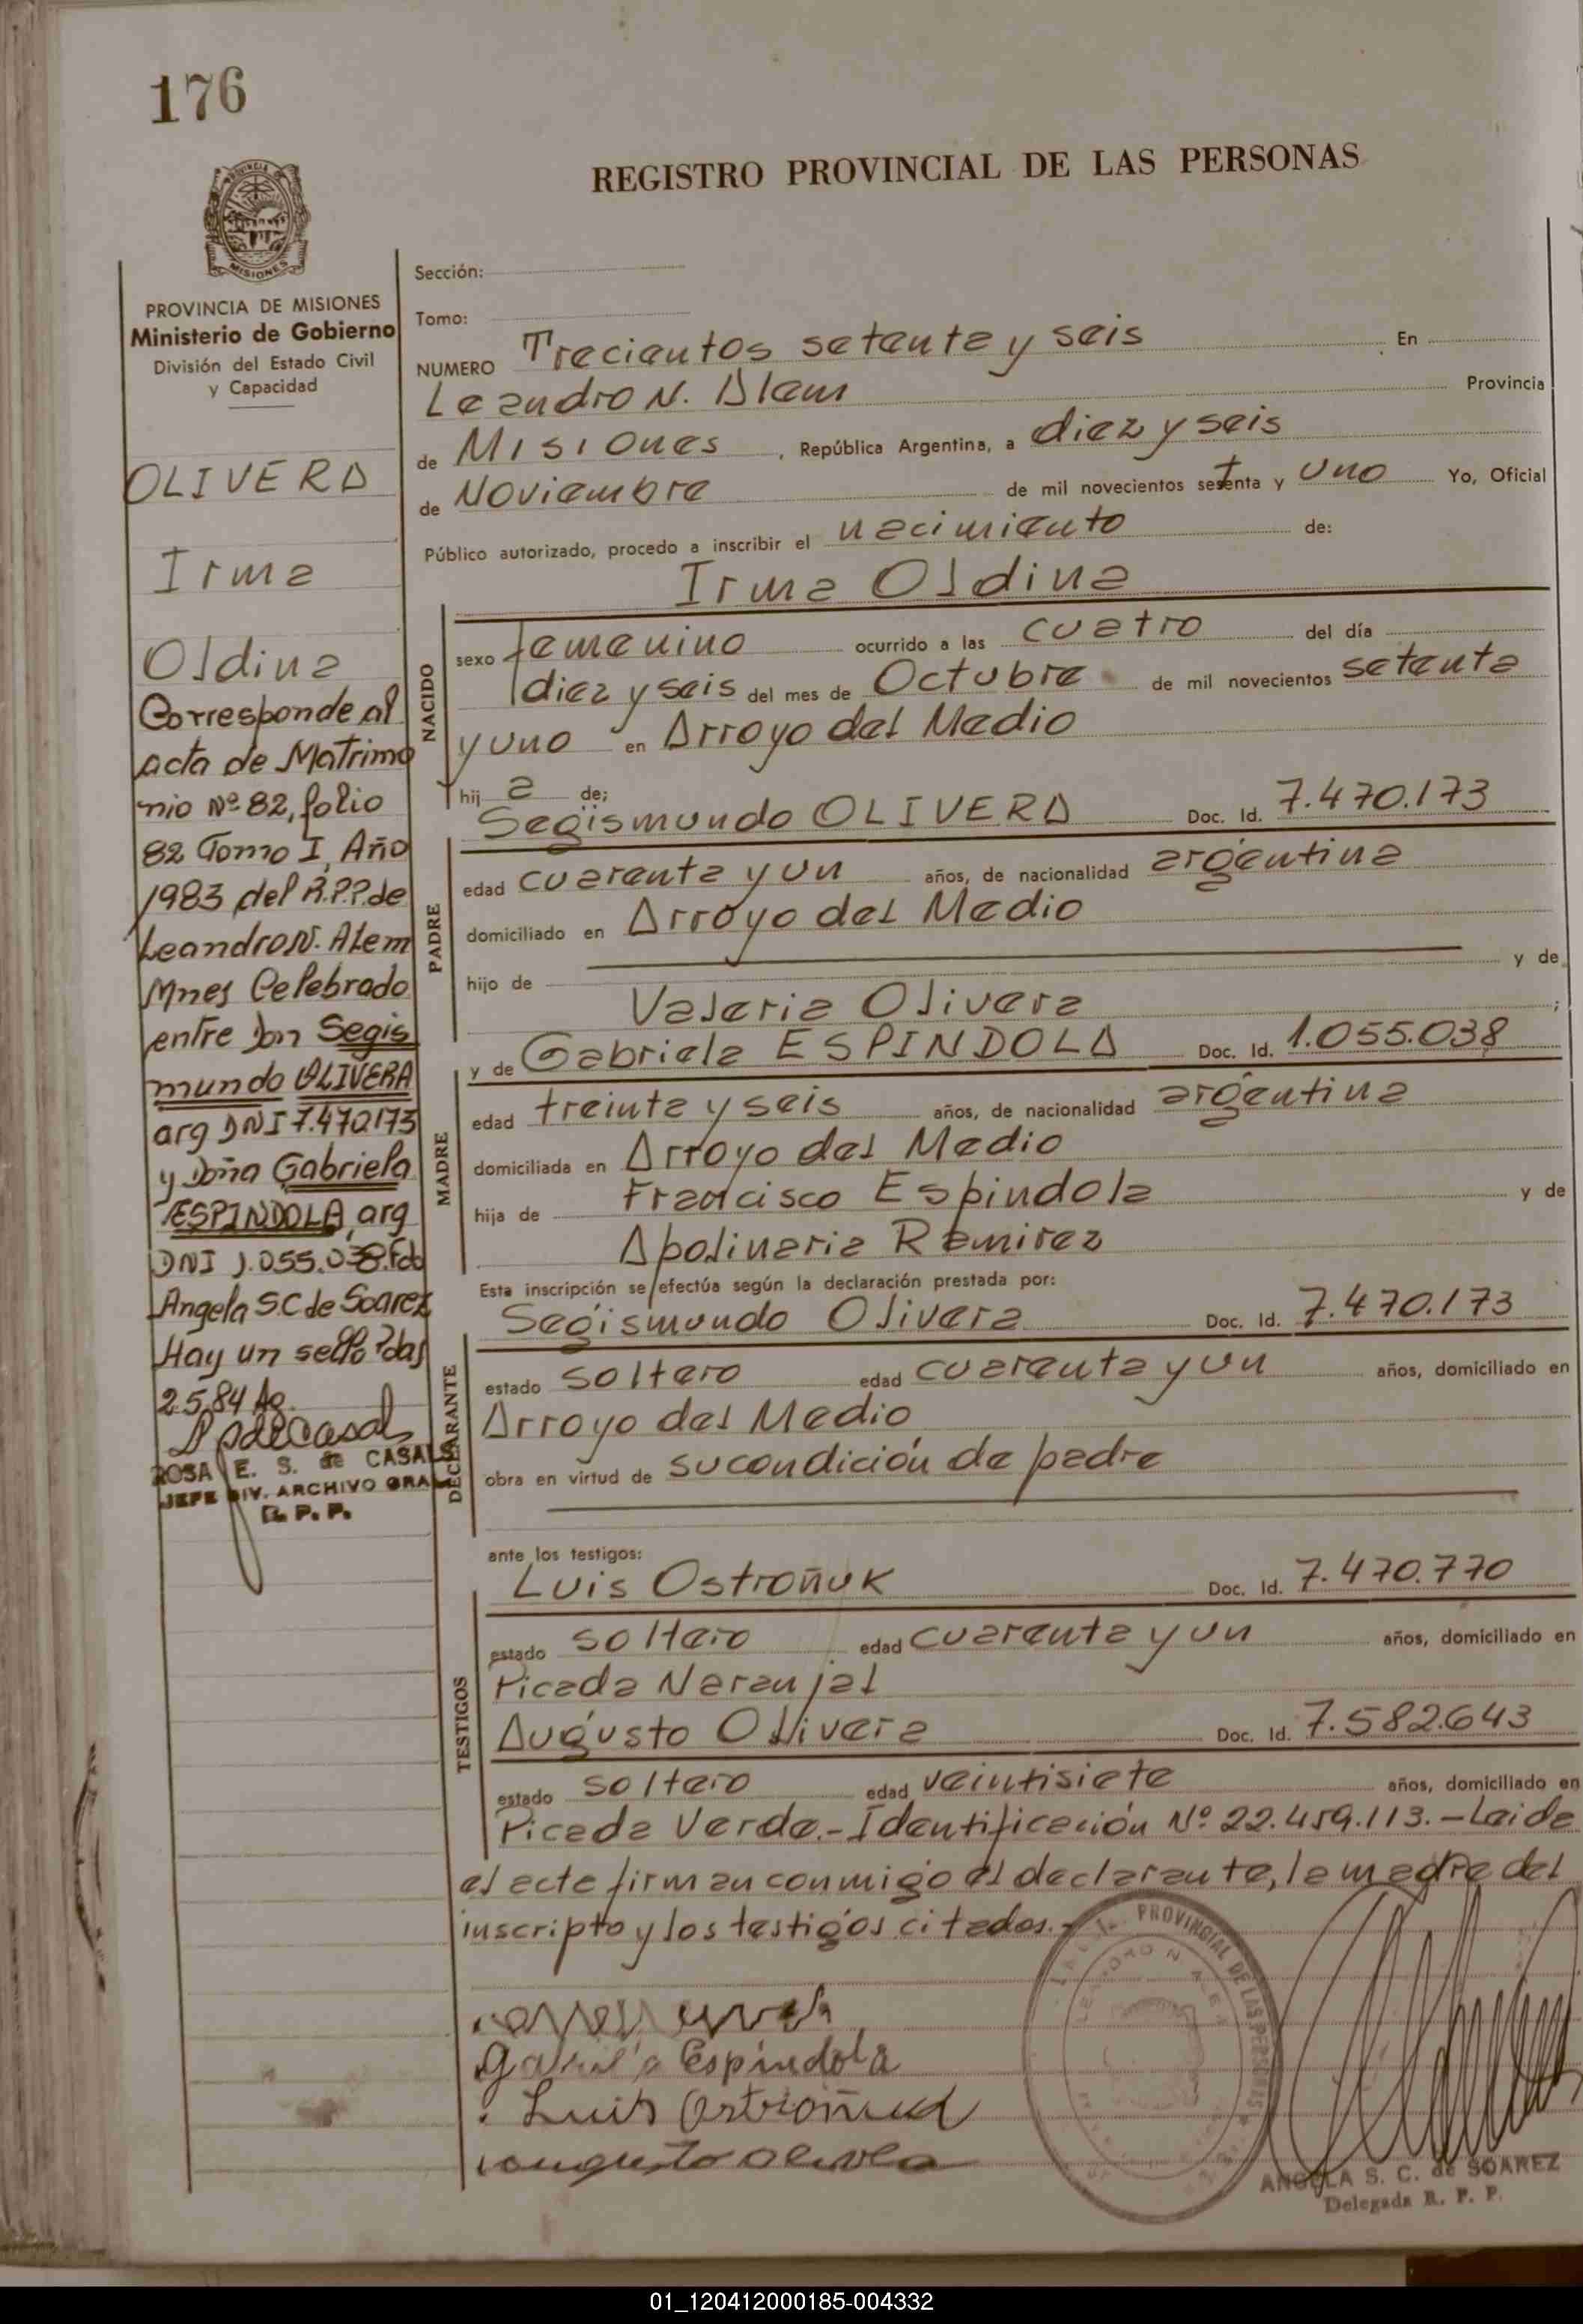 176
REGISTRO PROVINCIAL DE LAS PERSONAS
MISIONES
PROVINCIA DE MISIONES
Ministerio de Gobierno
División del Estado Civil
y Capacidad
OLIVERA
Irma
Oldina
Corresponde al
acta de Matrimo
nio Nº 82, folio
82 Tomo I, Año
1983 del R.P.P. de
Leandro N. Alem
Mnes Celebrado
entre Don Segis
mundo OLIVERA
arg DNI 7.470173
y Doña Gabriela
ESPINDOLA, arg
DNI 1.055.038. Fdo
Angela S.C de Soarez
Hay un sello Pdas
2.5.84
ROSA E. S. de CASALS
JEFE DIV. ARCHIVO GRAL
R. P. P.
Sección:
Tomo:
NUMERO Trecientos setenta y seis En
Leandro N. Alem Provincia
de Misiones, República Argentina, a diez y seis
de Noviembre de mil novecientos setenta y uno Yo, Oficial
Público autorizado, procedo a inscribir el nacimiento de:
Irma Oldina
NACIDO
sexo femenino ocurrido a las cuatro del día
diez y seis del mes de Octubre de mil novecientos setenta
y uno en Arroyo del Medio
hij a de;
Segismundo OLIVERA Doc. Id. 7.470.173
PADRE
edad cuarenta y un años, de nacionalidad argentina
domiciliado en Arroyo del Medio
hijo de y de
Valeria Olivera ;
y de Gabriela ESPINDOLA Doc. Id. 1.055.038
MADRE
edad treinta y seis años, de nacionalidad argentina
domiciliada en Arroyo del Medio
hija de Francisco Espindola y de
Apolinaria Ramirez
Esta inscripción se efectúa según la declaración prestada por:
Segismundo Olivera Doc. Id. 7.470.173
DECLARANTE
estado soltero edad cuarenta y un años, domiciliado en
Arroyo del Medio
obra en virtud de su condición de padre
ante los testigos:
Luis Ostroñuk Doc. Id. 7.470.770
TESTIGOS
estado soltero edad cuarenta y un años, domiciliado en
Picada Naranjal
Augusto Olivera Doc. Id. 7.582.643
estado soltero edad veintisiete años, domiciliado en
Picada Verde.- Identificación Nº 22.459.113.- Leida
el acta firman conmigo el declarante, la madre del
inscripto y los testigos citados.-
Espindola
Luis Ostroñuk
augusto olivera
PROVINCIAL DE LAS PERSONAS
LEANDRO N. ALEM
ANGELA S. C. de SOAREZ
Delegada R. P. P.
01_120412000185-004332